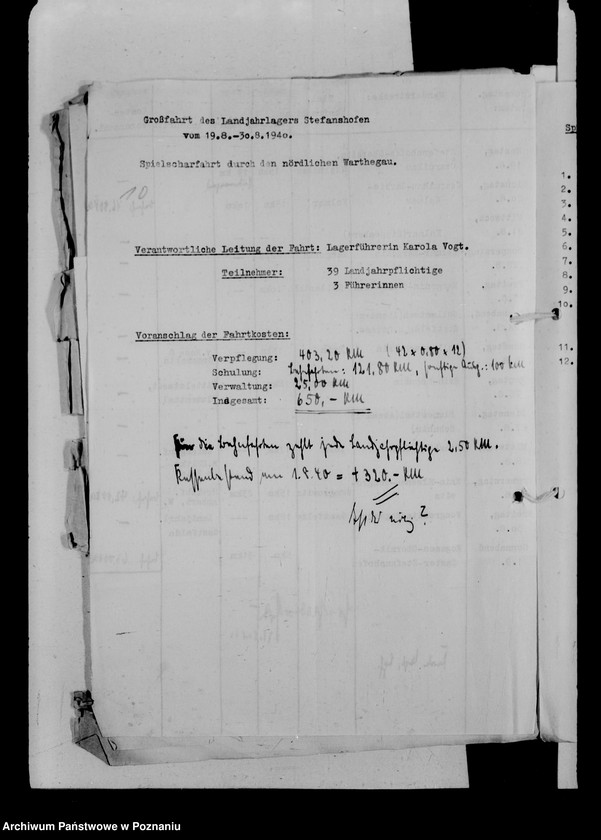 Großfahrt des Landjahrlagers Stefanshofen
vom 19.8.-30.8.1940.
Spielscharfahrt durch den nördlichen Warthegau.
10
Verantwortliche Leitung der Fahrt: Lagerführerin Karola Vogt.
Teilnehmer: 39 Landjahrpflichtige
3 Führerinnen
Voranschlag der Fahrtkosten:
Verpflegung: 403,20 RM (42 x 0.80 x 12)
Schulung: Bahnfahrten: 121.80 RM, sonstige Ausg.: 100 RM
Verwaltung: 25,00 RM
Insgesamt: 650,- RM
Für die Bahnfahrten zahlt jede Landjahrpflichtige 2.50 RM.
Kassenbestand am 1.8.40 = + 320.- RM
nötig?
Sp
1.
2.
3.
4.
5.
6.
7.
8.
9.
10.
11.
12.
Archiwum Państwowe w Poznaniu